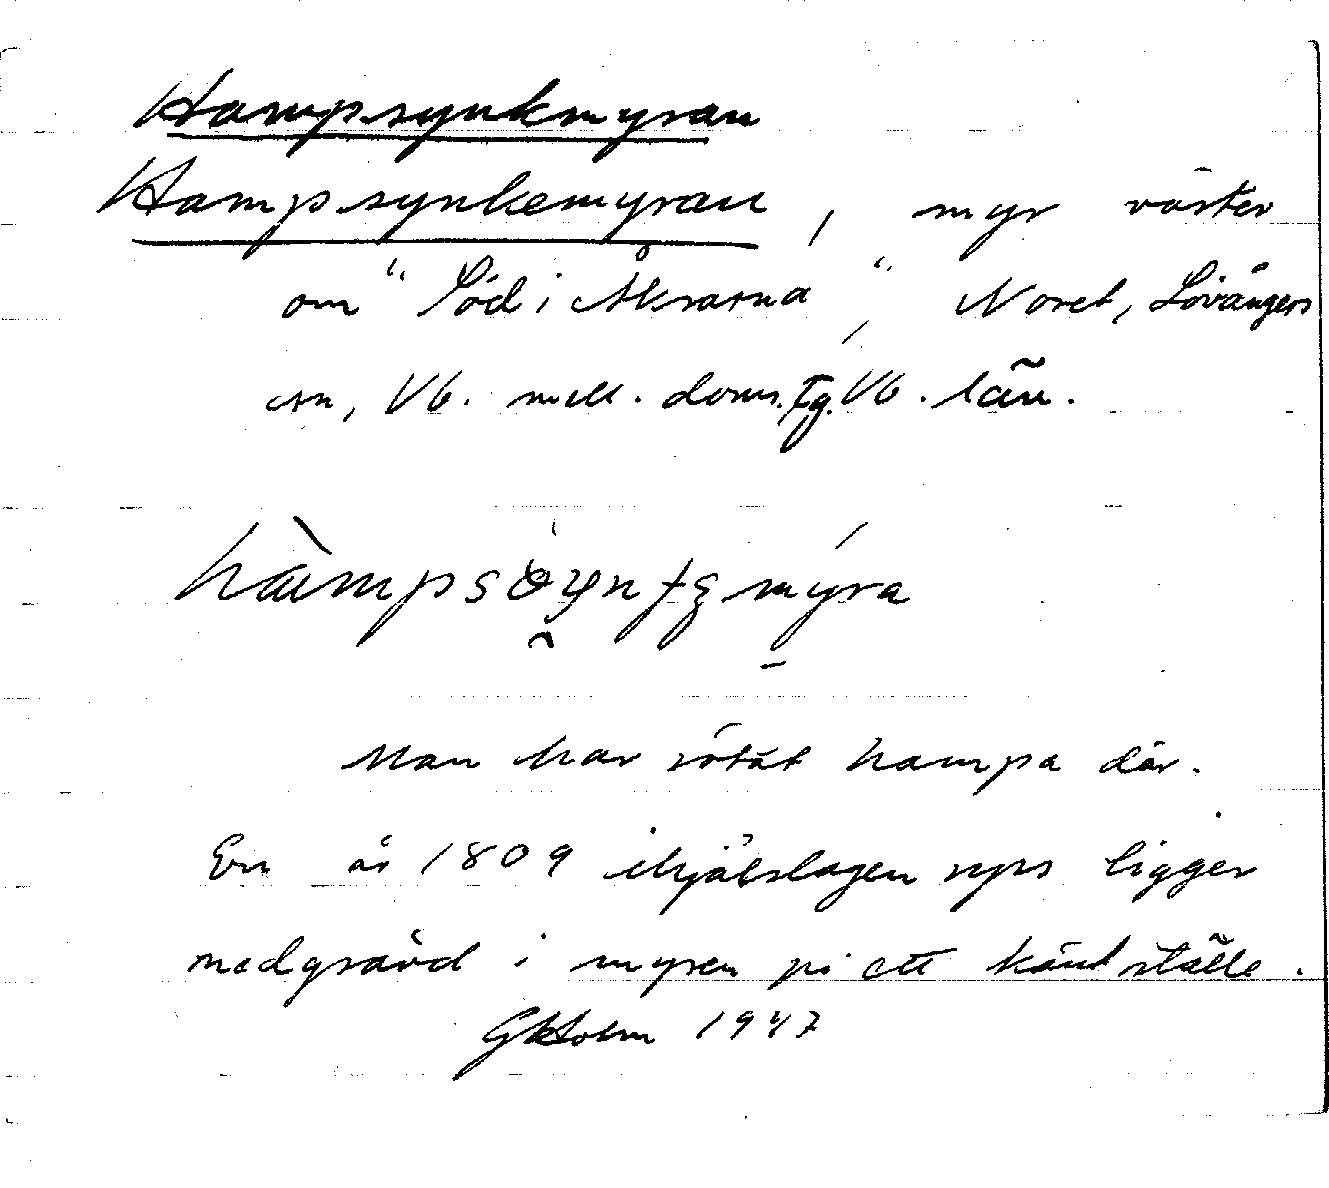 Hampsynkmyran
Hampsynkemyran, myr väster
om "Söd i Åkrarna", Noret, Lövångers
sn, Vb. mell. doms. tg. Vb. län.
Man har rötat hampa där.
En år 1809 ihjälslagen ryss ligger
nedgrävd i myren på ett känt ställe.
GHolm 1947